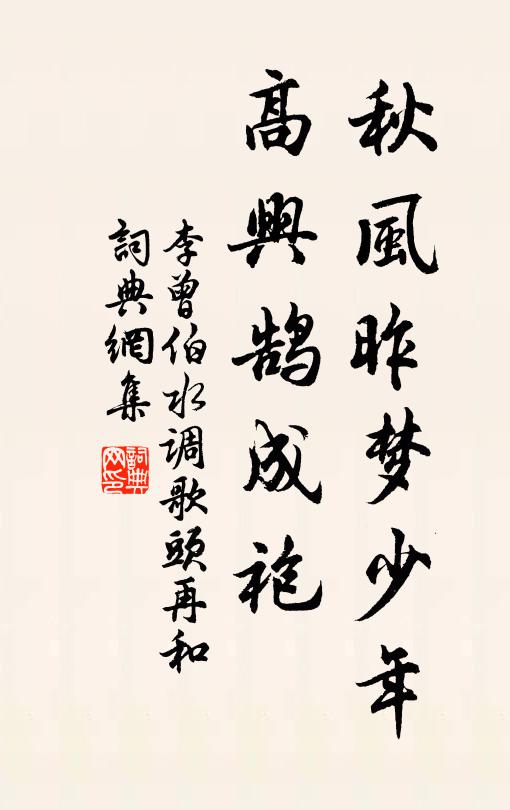 秋風昨梦少年
高興鹄成袍
李曾伯水调歌頭再和
詞典網集
詞典网印